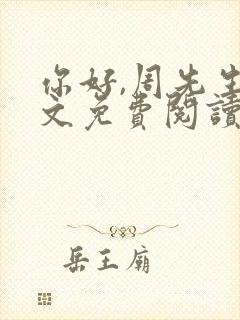 你好,周先生
文免費閱讀
岳王廟